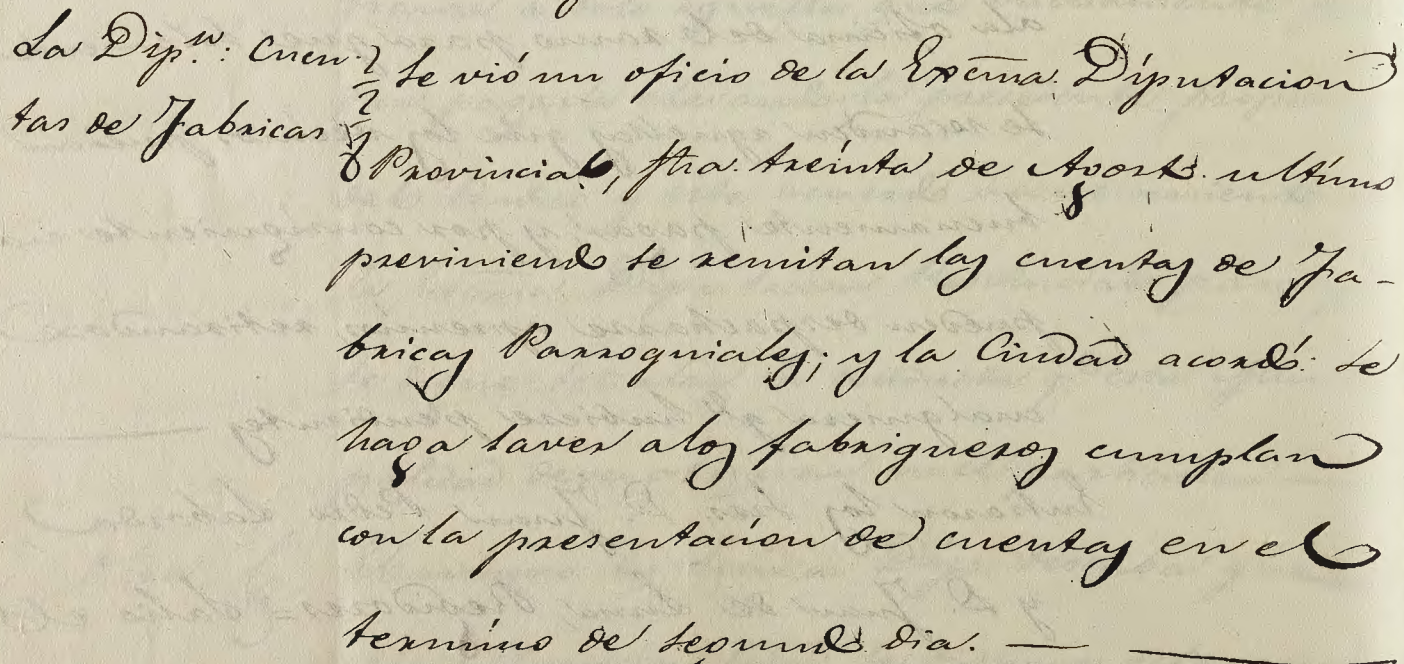 La Dip.n: Cuen-
tas de Fabricas
Se vió un oficio de la Excma. Diputacion
Provincial, fha. treinta de Agosto ultimo
previniendo se remitan las cuentas de Fa-
bricas Parroquiales; y la Ciudad acordó: se
haga saver a los fabriqueros cumplan
con la presentacion de cuentas en el
termino de segundo dia.